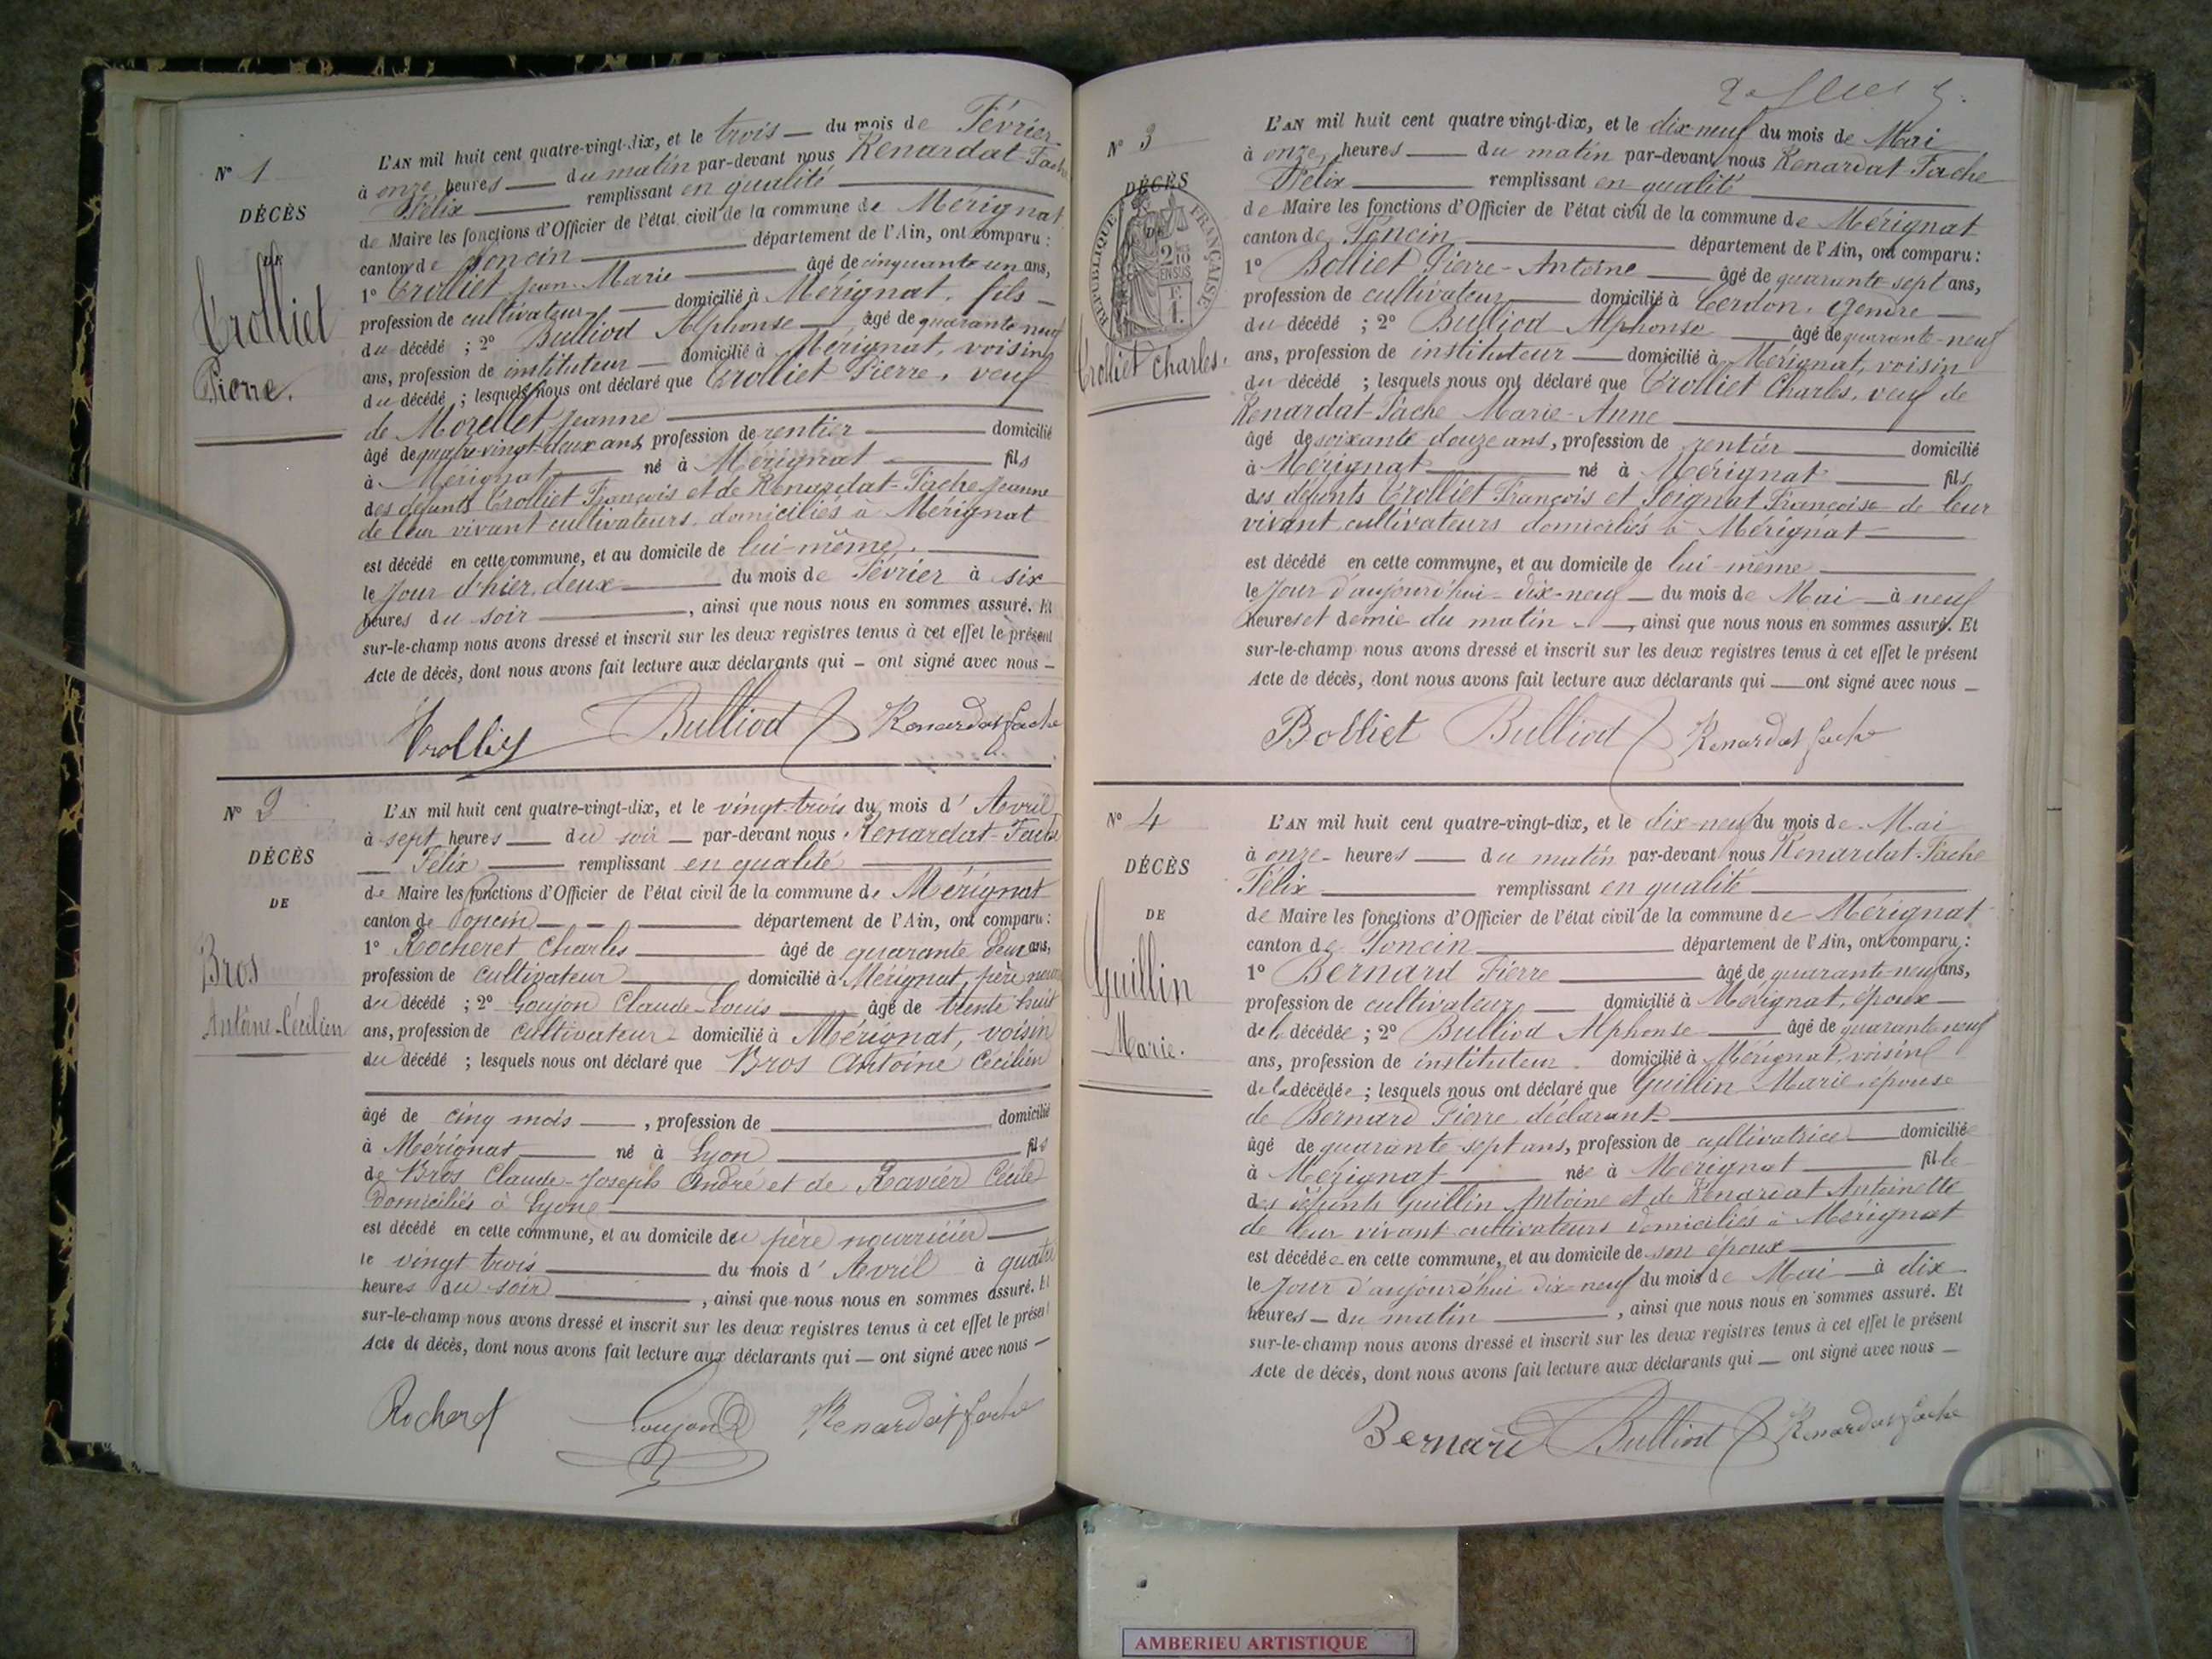 N° 1
DÉCÈS
DE
Trolliet
Pierre.
L'AN mil huit cent quatre-vingt-dix, et le trois — du mois de Février
à onze heures — du matin par-devant nous Renardat-Fache
Félix — remplissant en qualité —
de Maire les fonctions d'Officier de l'état civil de la commune de Mérignat
canton de Poncin — département de l'Ain, ont comparu :
1° Trolliet Jean-Marie — âgé de cinquante un ans,
profession de cultivateur — domicilié à Mérignat, fils —
du décédé ; 2° Bulliod Alphonse — âgé de quarante neuf
ans, profession de instituteur — domicilié à Mérignat, voisin
du décédé ; lesquels nous ont déclaré que Trolliet Pierre, veuf
de Morellet Jeanne —
âgé de quatre-vingt-deux ans, profession de rentier — domicilié
à Mérignat — né à Mérignat — fils
des défunts Trolliet François et de Renardat-Fache Jeanne
de leur vivant cultivateurs, domiciliés à Mérignat
est décédé en cette commune, et au domicile de lui-même. —
le Jour d'hier, deux — du mois de Février à six
heures du soir —, ainsi que nous nous en sommes assuré. Et
sur-le-champ nous avons dressé et inscrit sur les deux registres tenus à cet effet le présent
Acte de décès, dont nous avons fait lecture aux déclarants qui — ont signé avec nous —
Trolliet Bulliod Renardat fache
N° 2
DÉCÈS
DE
Bros
Antoine-Cécilien
L'AN mil huit cent quatre-vingt-dix, et le vingt-trois du mois d'Avril
à sept heures — du soir — par-devant nous Renardat-Fache
— Félix — remplissant en qualité —
de Maire les fonctions d'Officier de l'état civil de la commune de Mérignat
canton de Poncin — département de l'Ain, ont comparu :
1° Rocheret Charles — âgé de quarante deux ans,
profession de cultivateur — domicilié à Mérignat, père
du décédé ; 2° Goujon Claude-Louis — âgé de trente huit
ans, profession de cultivateur - domicilié à Mérignat, voisin
du décédé ; lesquels nous ont déclaré que Bros Antoine Cécilien
âgé de cinq mois —, profession de — domicilié
à Mérignat — né à Lyon — fils
de Bros Claude-Joseph André et de Ravier Cécile
domiciliés à Lyon —
est décédé en cette commune, et au domicile du père nourricier —
le vingt trois — du mois d'Avril à quatre
heures du soir —, ainsi que nous nous en sommes assuré. Et
sur-le-champ nous avons dressé et inscrit sur les deux registres tenus à cet effet le présent
Acte de décès, dont nous avons fait lecture aux déclarants qui — ont signé avec nous —
Rocheret Goujon Renardat fache
N° 3
DÉCÈS
DE
RÉPUBLIQUE FRANÇAISE
Trolliet Charles.
L'AN mil huit cent quatre vingt-dix, et le dix neuf du mois de Mai
à onze heures — du matin par-devant nous Renardat-Fache
Félix — remplissant en qualité —
de Maire les fonctions d'Officier de l'état civil de la commune de Mérignat
canton de Poncin — département de l'Ain, ont comparu :
1° Bolliet Pierre-Antoine — âgé de quarante sept ans,
profession de cultivateur — domicilié à Cerdon, gendre —
du décédé ; 2° Bulliod Alphonse — âgé de quarante-neuf
ans, profession de instituteur — domicilié à Mérignat, voisin
du décédé ; lesquels nous ont déclaré que Trolliet Charles, veuf de
Renardat-Fache Marie-Anne —
âgé de soixante douze ans, profession de rentier — domicilié
à Mérignat — né à Mérignat — fils
des défunts Trolliet François et Soignat Françoise de leur
vivant cultivateurs domiciliés à Mérignat —
est décédé en cette commune, et au domicile de lui-même —
le Jour d'aujourd'hui - dix-neuf — du mois de Mai — à neuf
heures et demie du matin - —, ainsi que nous nous en sommes assuré. Et
sur-le-champ nous avons dressé et inscrit sur les deux registres tenus à cet effet le présent
Acte de décès, dont nous avons fait lecture aux déclarants qui — ont signé avec nous —
Bolliet Bulliod Renardat fache
N° 4
DÉCÈS
DE
Guillin
Marie.
L'AN mil huit cent quatre-vingt-dix, et le dix-neuf du mois de Mai
à onze - heures — du matin par-devant nous Renardat-Fache
Félix — remplissant en qualité —
de Maire les fonctions d'Officier de l'état civil de la commune de Mérignat
canton de Poncin — département de l'Ain, ont comparu :
1° Bernard Pierre — âgé de quarante-neuf ans,
profession de cultivateur — domicilié à Mérignat, époux —
de la décédée ; 2° Bulliod Alphonse — âgé de quarante neuf
ans, profession de instituteur - domicilié à Mérignat, voisin
de la décédée ; lesquels nous ont déclaré que Guillin Marie, épouse
de Bernard Pierre déclarant —
âgé de quarante-sept ans, profession de cultivatrice — domiciliée
à Mérignat — née à Mérignat — fille
des défunts Guillin Antoine et de Renardat Antoinette
de leur vivant cultivateurs domiciliés à Mérignat
est décédée en cette commune, et au domicile de son époux —
le Jour d'aujourd'hui dix-neuf du mois de Mai — à dix
heures — du matin —, ainsi que nous nous en sommes assuré. Et
sur-le-champ nous avons dressé et inscrit sur les deux registres tenus à cet effet le présent
Acte de décès, dont nous avons fait lecture aux déclarants qui — ont signé avec nous —
Bernard Bulliod Renardat fache
AMBERIEU ARTISTIQUE